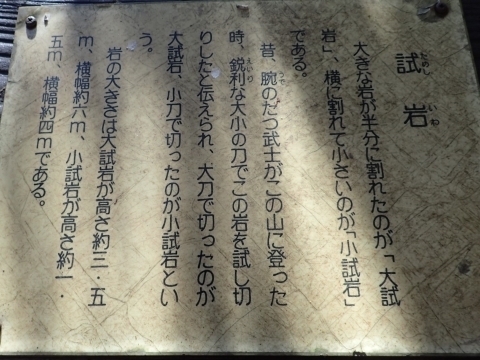 試岩
ためし いわ
大きな岩が半分に割れたのが「大試
岩」、横に割れて小さいのが「小試岩」
である。
昔、腕のたつ武士がこの山に登った
時、鋭利な大小の刀でこの岩を試し切
りしたと伝えられ、大刀で切ったのが
大試岩、小刀で切ったのが小試岩とい
う。
岩の大きさは大試岩が高さ約三・五
m、横幅約六m、小試岩が高さ約一・
五m、横幅約四mである。